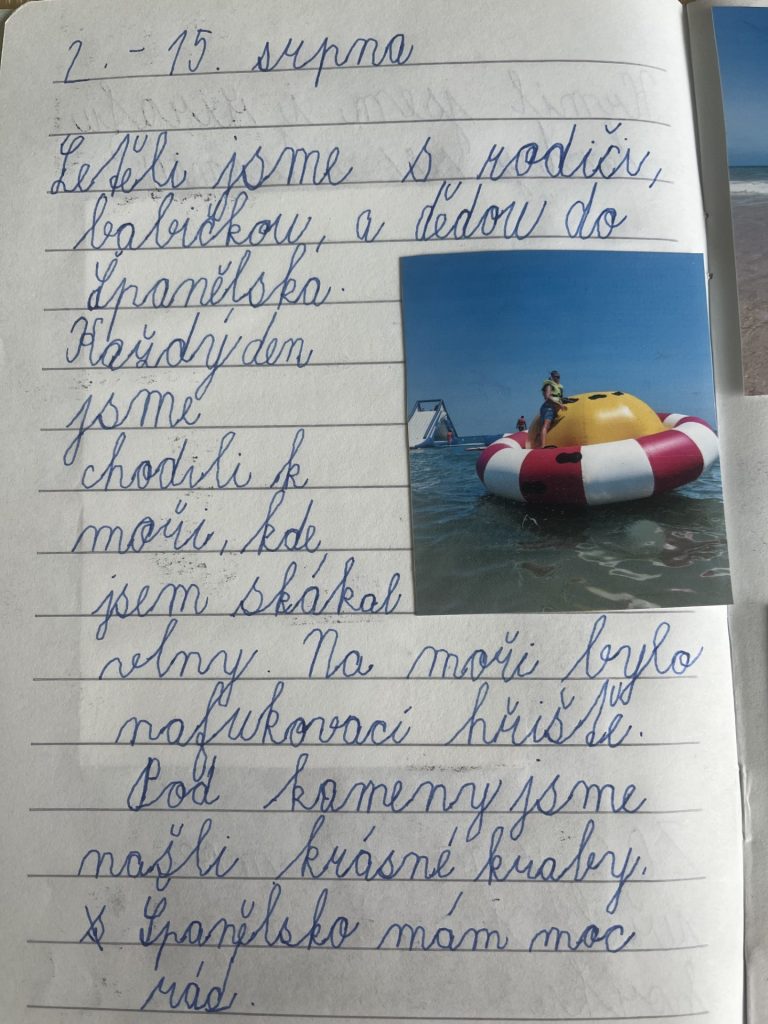 2. - 15. srpna
Letěli jsme s rodiči,
babičkou, a dědou do
Španělska.
Každý den
jsme
chodili k
moři, kde
jsem skákal
vlny. Na moři bylo
nafukovací hřiště.
Pod kameny jsme
našli krásné kraby.
Španělsko mám moc
rád.